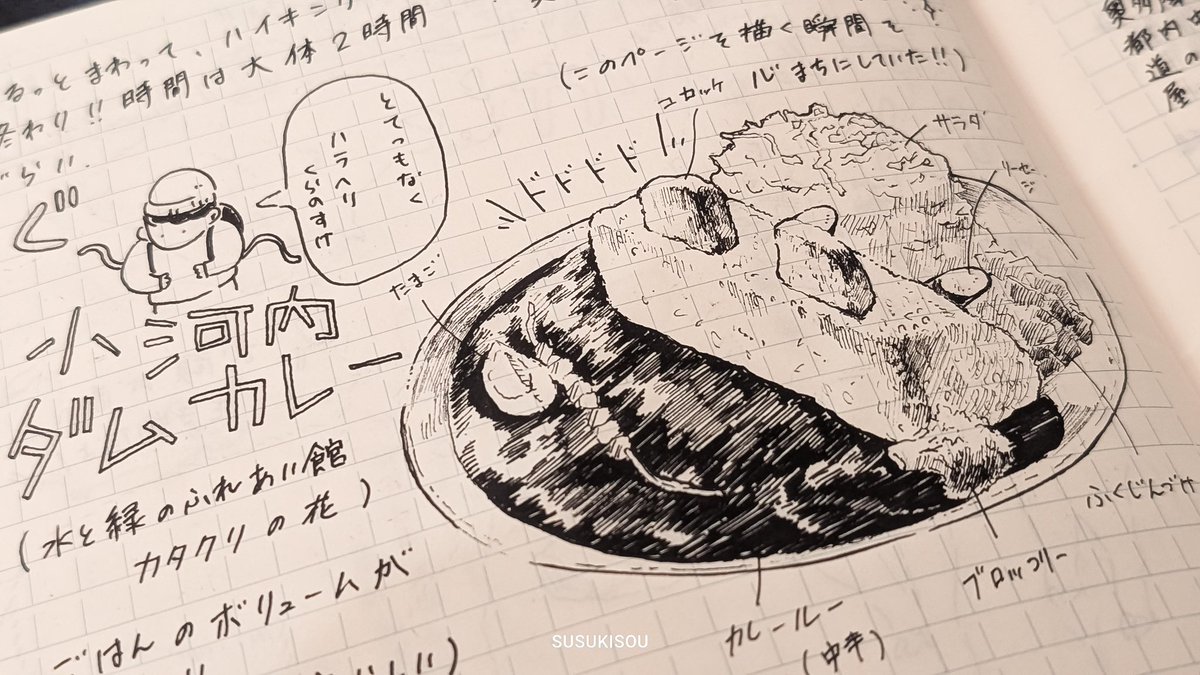 るっとまわって、ハイキン
終わり!!時間は大体2時間
ぐらい.
ぐ
とてつもなく
ハラヘリ
くらのすけ
小河内
ダムカレー
(水と緑のふれあい館
カタクリの花)
ごはんのボリュームが
(このページを描く瞬間を
心まちにしていた!!)
ドドドド
コロッケ
サラダ
ソーセージ
たまご
ふくじんづけ
ブロッコリー
カレールー
(中辛)
奥多摩
都内
道の
屋
SUSUKISOU